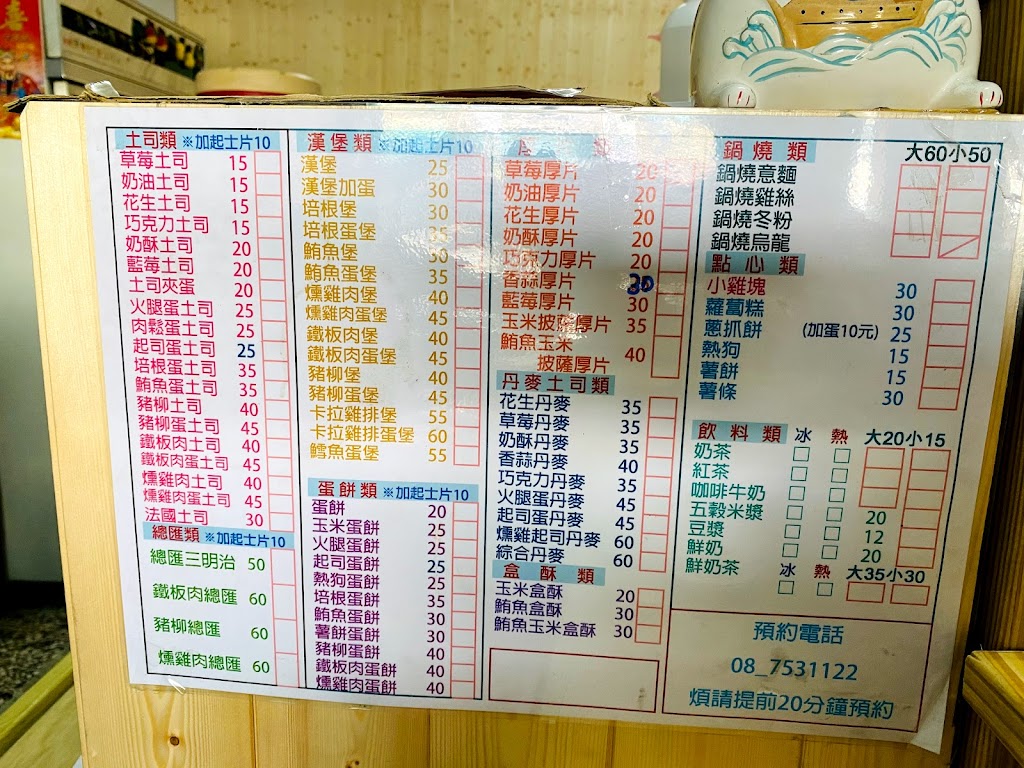 土司類 ※加起士片10
草莓土司 15
奶油土司 15
花生土司 15
巧克力土司 15
奶酥土司 20
藍莓土司 20
土司夾蛋 20
火腿蛋土司 25
肉鬆蛋土司 25
起司蛋土司 25
培根蛋土司 35
鮪魚蛋土司 35
豬柳土司 40
豬柳蛋土司 45
鐵板肉土司 40
鐵板肉蛋土司 45
燻雞肉土司 40
燻雞肉蛋土司 45
法國土司 30
總匯類 ※加起士片10
總匯三明治 50
鐵板肉總匯 60
豬柳總匯 60
燻雞肉總匯 60
漢堡類 ※加起士片10
漢堡 25
漢堡加蛋 30
培根堡 30
培根蛋堡 35
鮪魚堡 30
鮪魚蛋堡 35
燻雞肉堡 40
燻雞肉蛋堡 45
鐵板肉堡 40
鐵板肉蛋堡 45
豬柳堡 40
豬柳蛋堡 45
卡拉雞排堡 55
卡拉雞排蛋堡 60
鱈魚蛋堡 55
蛋餅類 ※加起士片10
蛋餅 20
玉米蛋餅 25
火腿蛋餅 25
起司蛋餅 25
熱狗蛋餅 25
培根蛋餅 35
鮪魚蛋餅 30
薯餅蛋餅 30
豬柳蛋餅 40
鐵板肉蛋餅 40
燻雞肉蛋餅 40
草莓厚片 20
奶油厚片 20
花生厚片 20
奶酥厚片 20
巧克力厚片 20
香蒜厚片 30
藍莓厚片 30
玉米披薩厚片 35
鮪魚玉米
披薩厚片 40
丹麥土司類
花生丹麥 35
草莓丹麥 35
奶酥丹麥 35
香蒜丹麥 40
巧克力丹麥 35
火腿蛋丹麥 45
起司蛋丹麥 45
燻雞起司丹麥 60
綜合丹麥 60
盒酥類
玉米盒酥 20
鮪魚盒酥 30
鮪魚玉米盒酥 30
鍋燒類 大60小50
鍋燒意麵
鍋燒雞絲
鍋燒冬粉
鍋燒烏龍
點心類
小雞塊 30
蘿蔔糕 30
蔥抓餅 (加蛋10元) 25
熱狗 15
薯餅 15
薯條 30
飲料類 冰 熱 大20小15
奶茶
紅茶
咖啡牛奶
五穀米漿 20
豆漿 12
鮮奶 20
鮮奶茶 冰 熱 大35小30
預約電話
08_7531122
煩請提前20分鐘預約